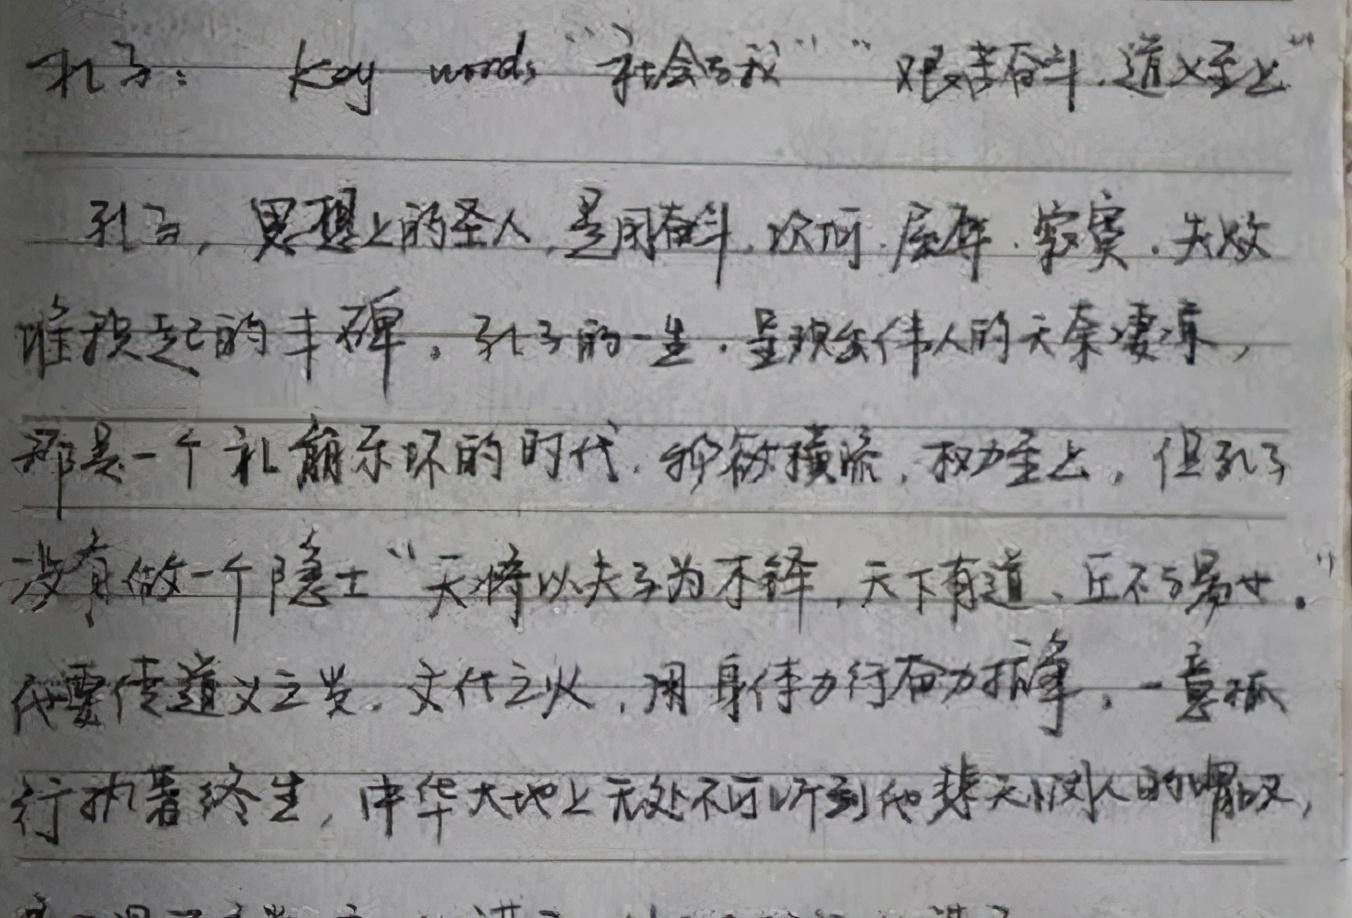 孔子： Key words “社会与我” “艰苦奋斗、道义至上”
孔子，思想上的圣人，是用奋斗、坎坷、屈辱、寂寞、失败
堆积起的丰碑。孔子的一生，呈现出伟人的天秉凄凉，
那是一个礼崩乐坏的时代，物欲横流，权力至上，但孔子
没有做一个隐士“天将以夫子为木铎，天下有道、丘不与易也。”
他要传道义之 文化之火，用身体力行奋力抗争，一意孤
行执著终生，中华大地上无处不可听到他悲天悯人的喟叹，